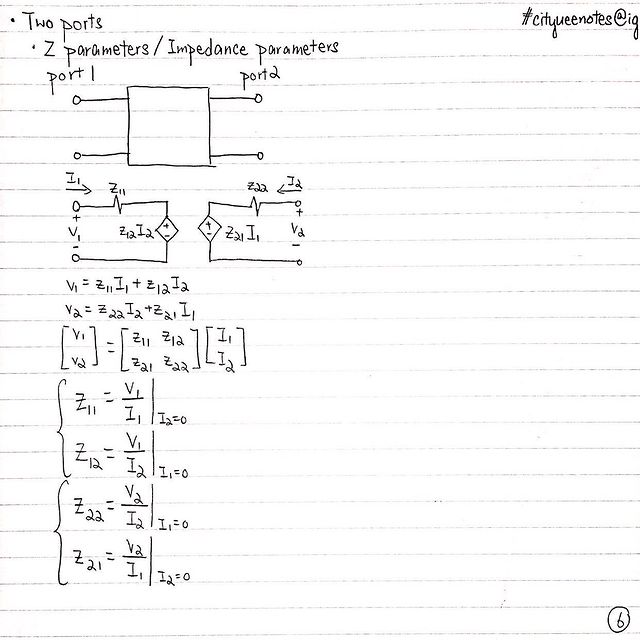 • Two ports
#cityueenotes@ig
• Z parameters / Impedance parameters
port 1
port 2
I₁
Z₁₁
Z₂₂
I₂
+
V₁
-
Z₁₂I₂
+
-
+
-
Z₂₁I₁
+
V₂
-
V₁ = Z₁₁I₁ + Z₁₂I₂
V₂ = Z₂₂I₂ + Z₂₁I₁
[V₁ V₂] = [Z₁₁ Z₁₂ Z₂₁ Z₂₂] [I₁ I₂]
Z₁₁ = V₁/I₁ | I₂=0
Z₁₂ = V₁/I₂ | I₁=0
Z₂₂ = V₂/I₂ | I₁=0
Z₂₁ = V₂/I₁ | I₂=0
6